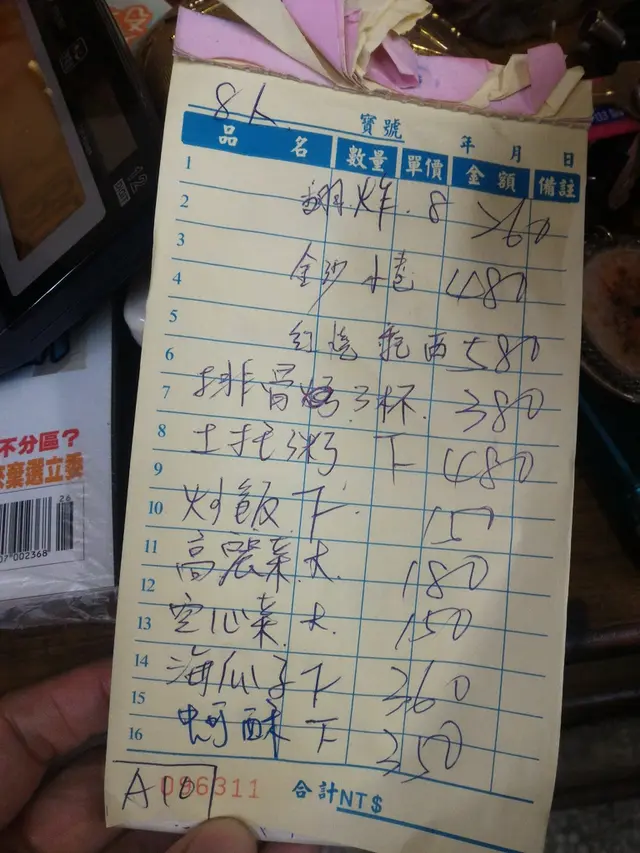 8人
寶號
年 月 日
品名 數量 單價 金額 備註
1
2 炸 8 260
3
4 金沙 480
5
6 紅 580
7 排骨 3杯 380
8 土托粥 下 480
9
10 炒飯 下 150
11 高麗菜 大 180
12
13 空心菜 大 150
14 海瓜子 下 360
15
16 蚵酥 下 350
A10 096311 合計NT$
不分區?
棄選立委
07 002368
12